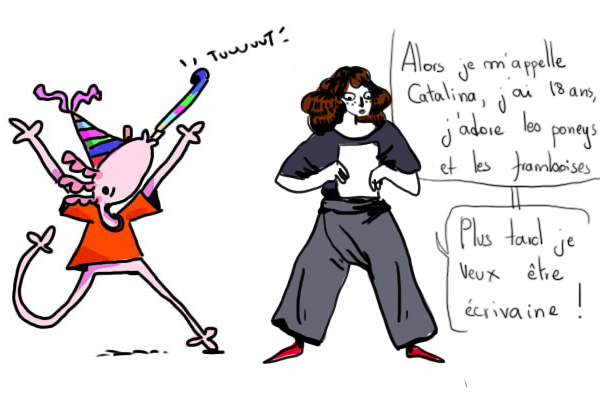 TUUUUUT!
Alors je m'appelle
Catalina, j'ai 18 ans,
j'adore les poneys
et les framboises
Plus tard je
veux être
écrivaine !